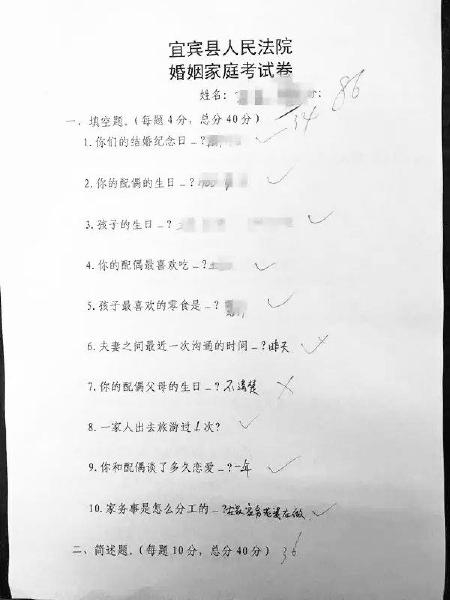 宜宾县人民法院
婚姻家庭考试卷
姓名:
86
一、填空题。(每题4分,总分40分) 34
1.你们的结婚纪念日_?
2.你的配偶的生日_?
3.孩子的生日_?
4.你的配偶最喜欢吃_?
5.孩子最喜欢的零食是_?
6.夫妻之间最近一次沟通的时间_?昨天
7.你的配偶父母的生日_?不清楚
8.一家人出去旅游过1次?
9.你和配偶谈了多久恋爱_?一年
10.家务事是怎么分工的_?在做
二、简述题。(每题10分,总分40分) 36